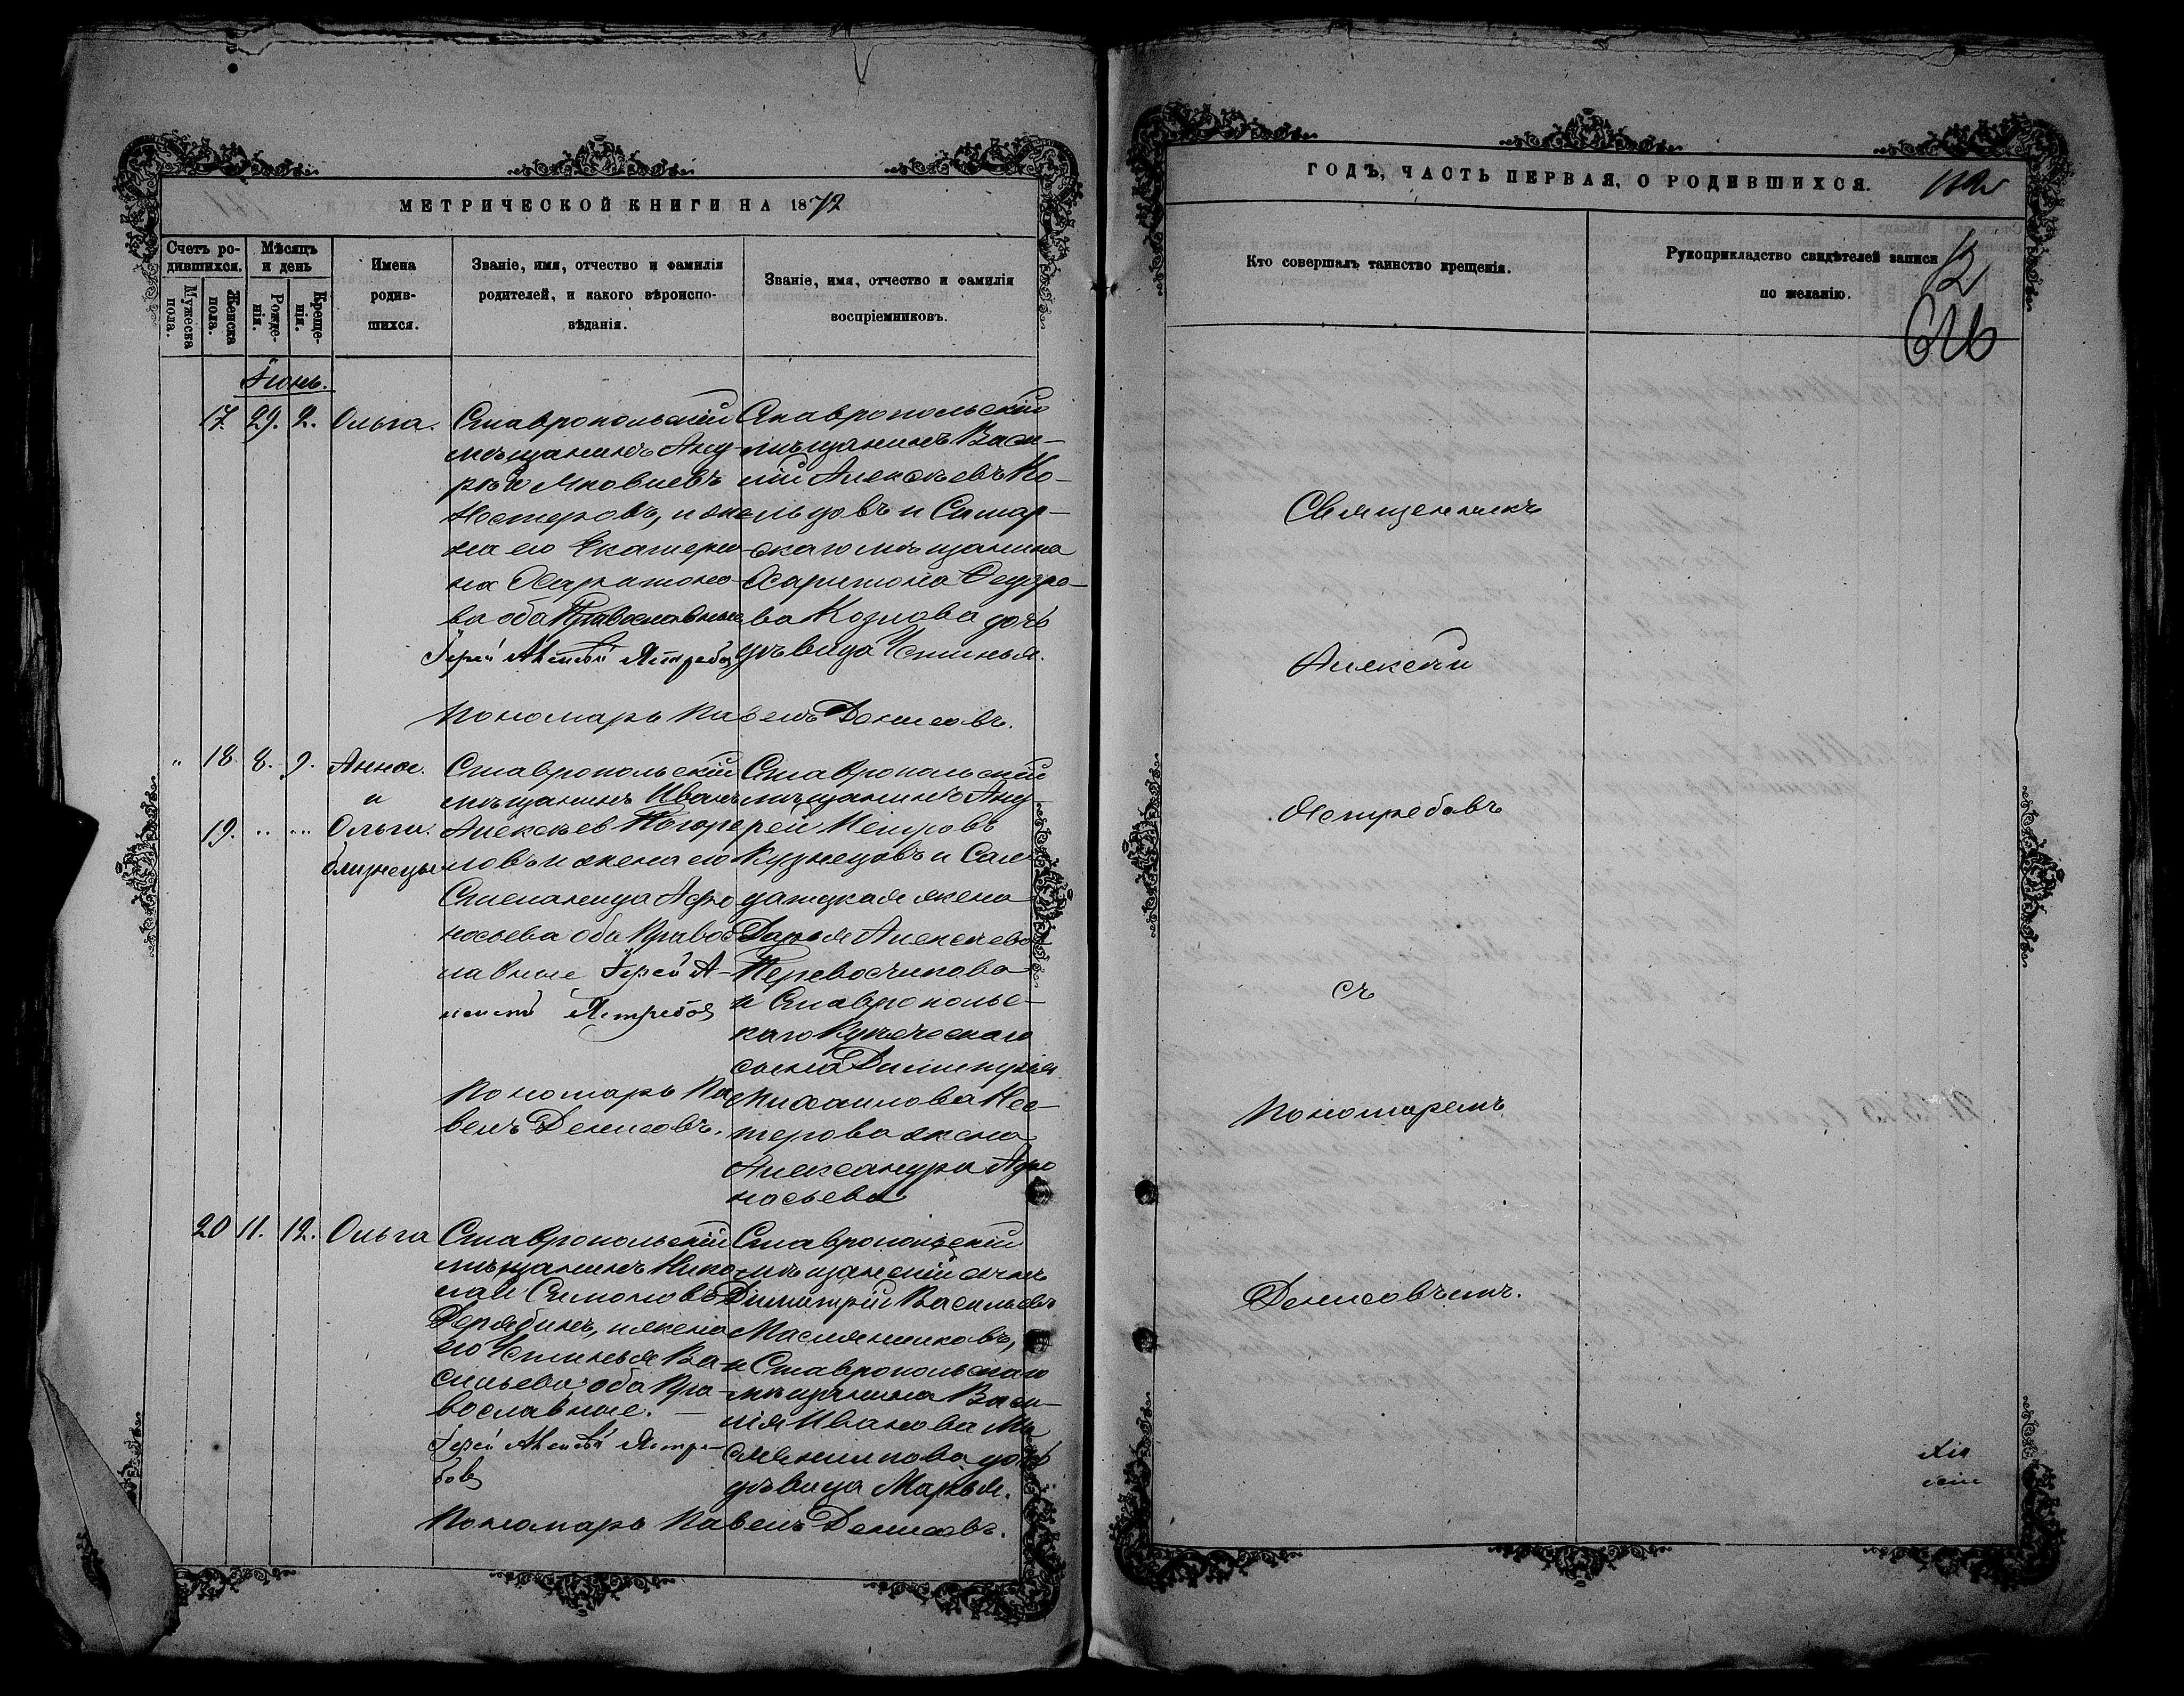 МЕТРИЧЕСКОЙ КНИГИ НА 1872
Счетъ ро-
дившихся.
Мужеска
пола.
Женска
пола.
Мѣсяцъ
и день
Рожде-
нія.
Креще-
нія.
Имена
родив-
шихся.
Званіе, имя, отчество и фамилія
родителей, и какого вѣроиспо-
вѣданія.
Званіе, имя, отчество и фамилія
воспріемниковъ.
Іюнь.
17. 29. 2. Ольга.
Ставропольскій
мѣщанинъ Анд-
рѣй Яковлевъ
Нестеровъ, и же-
на его Екатери-
на Харитоно-
ва оба Православные
Іерей Алексѣй Ястребов
Ставропольскій
мѣщанинъ Васи-
лій Алексѣевъ Ко-
льдовъ и Самар-
скаго мѣщанина
Харитона Федоро-
ва Козлова дочь
дѣвица Устинья.
Пономарь Павелъ Денисовъ.
" 18 8. 9. Анна.
и
19. " " Ольга.
близнецы
Ставропольскій
мѣщанинъ Иванъ
Алексѣев Погоре
ловъ и жена его
Степанида Афо
насьева оба Правос
лавные Іерей А-
лексѣй Ястребов
Пономарь Па
велъ Денисовъ.
Ставропольскій
мѣщанинъ Анд
рей Петровъ
Кузнецовъ и Сол-
датская жена
Дарья Алексѣева
Перевощикова
и Ставрополь-
скаго Купеческаго
сына Димитрія
Михаилова Нес-
терова жена
Александра Афо
насьева
20 11. 12. Ольга
Ставропольскій
мѣщанинъ Нико-
лай Симоновъ
Дерябинъ, и жена
его Устинья Ва-
сильева оба Пра-
вославные. —
Іерей Алексѣй Ястре-
бов
Ставропольскій
мѣщанскій сынъ
Димитрій Васильевъ
Маслянниковъ,
и Ставропольскаго
мѣщанина Васи-
лія Иванова Ма
слянникова дочь
дѣвица Марья.
Пономарь Павелъ Денисовъ.
ГОДЪ, ЧАСТЬ ПЕРВАЯ, О РОДИВШИХСЯ.
Кто совершалъ таинство крещенія.
Рукоприкладство свидѣтелей записи
по желанію.
12
Священникъ
Алексѣй
Ястребовъ
съ
Пономаремъ
Денисовымъ.